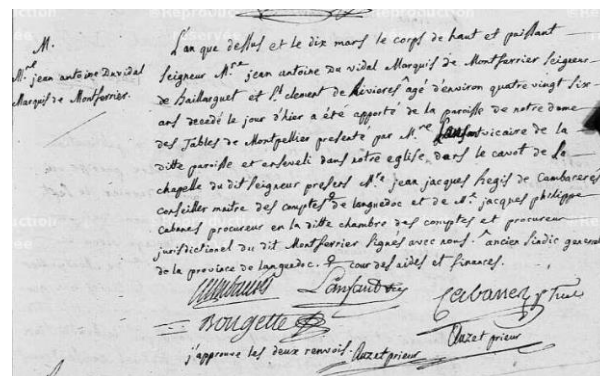 M.
M.re jean antoine Duvidal
Marquis de Montferrier.
L'an que dessus et le dix mars le corps de haut et puissant
seigneur M.re jean antoine du vidal Marquis de Montferrier seigneur
de Baillarguet et St. clement de Rivieres agé d'environ quatre vingt six
ans decedé le jour d'hier a été apporté de la paroisse de notre dame
des Tables de Montpellier presenté par M.re vicaire de la
ditte paroisse et enseveli dans notre eglise, dans le cavot de la
chapelle du dit seigneur presens M.re jean jacques Regis de Cambaceres
conseiller maitre des comptes de languedoc et de M.r jacques philippe
cabanes procureur en la ditte chambre des comptes et procureur
jurisdictionel du dit Montferrier signés avec nous. ancien sindic general
de la province de languedoc. cour des aides et finances.
Cabanes
Rougette
Auzet prieur
j'approuve les deux renvois. Auzet prieur